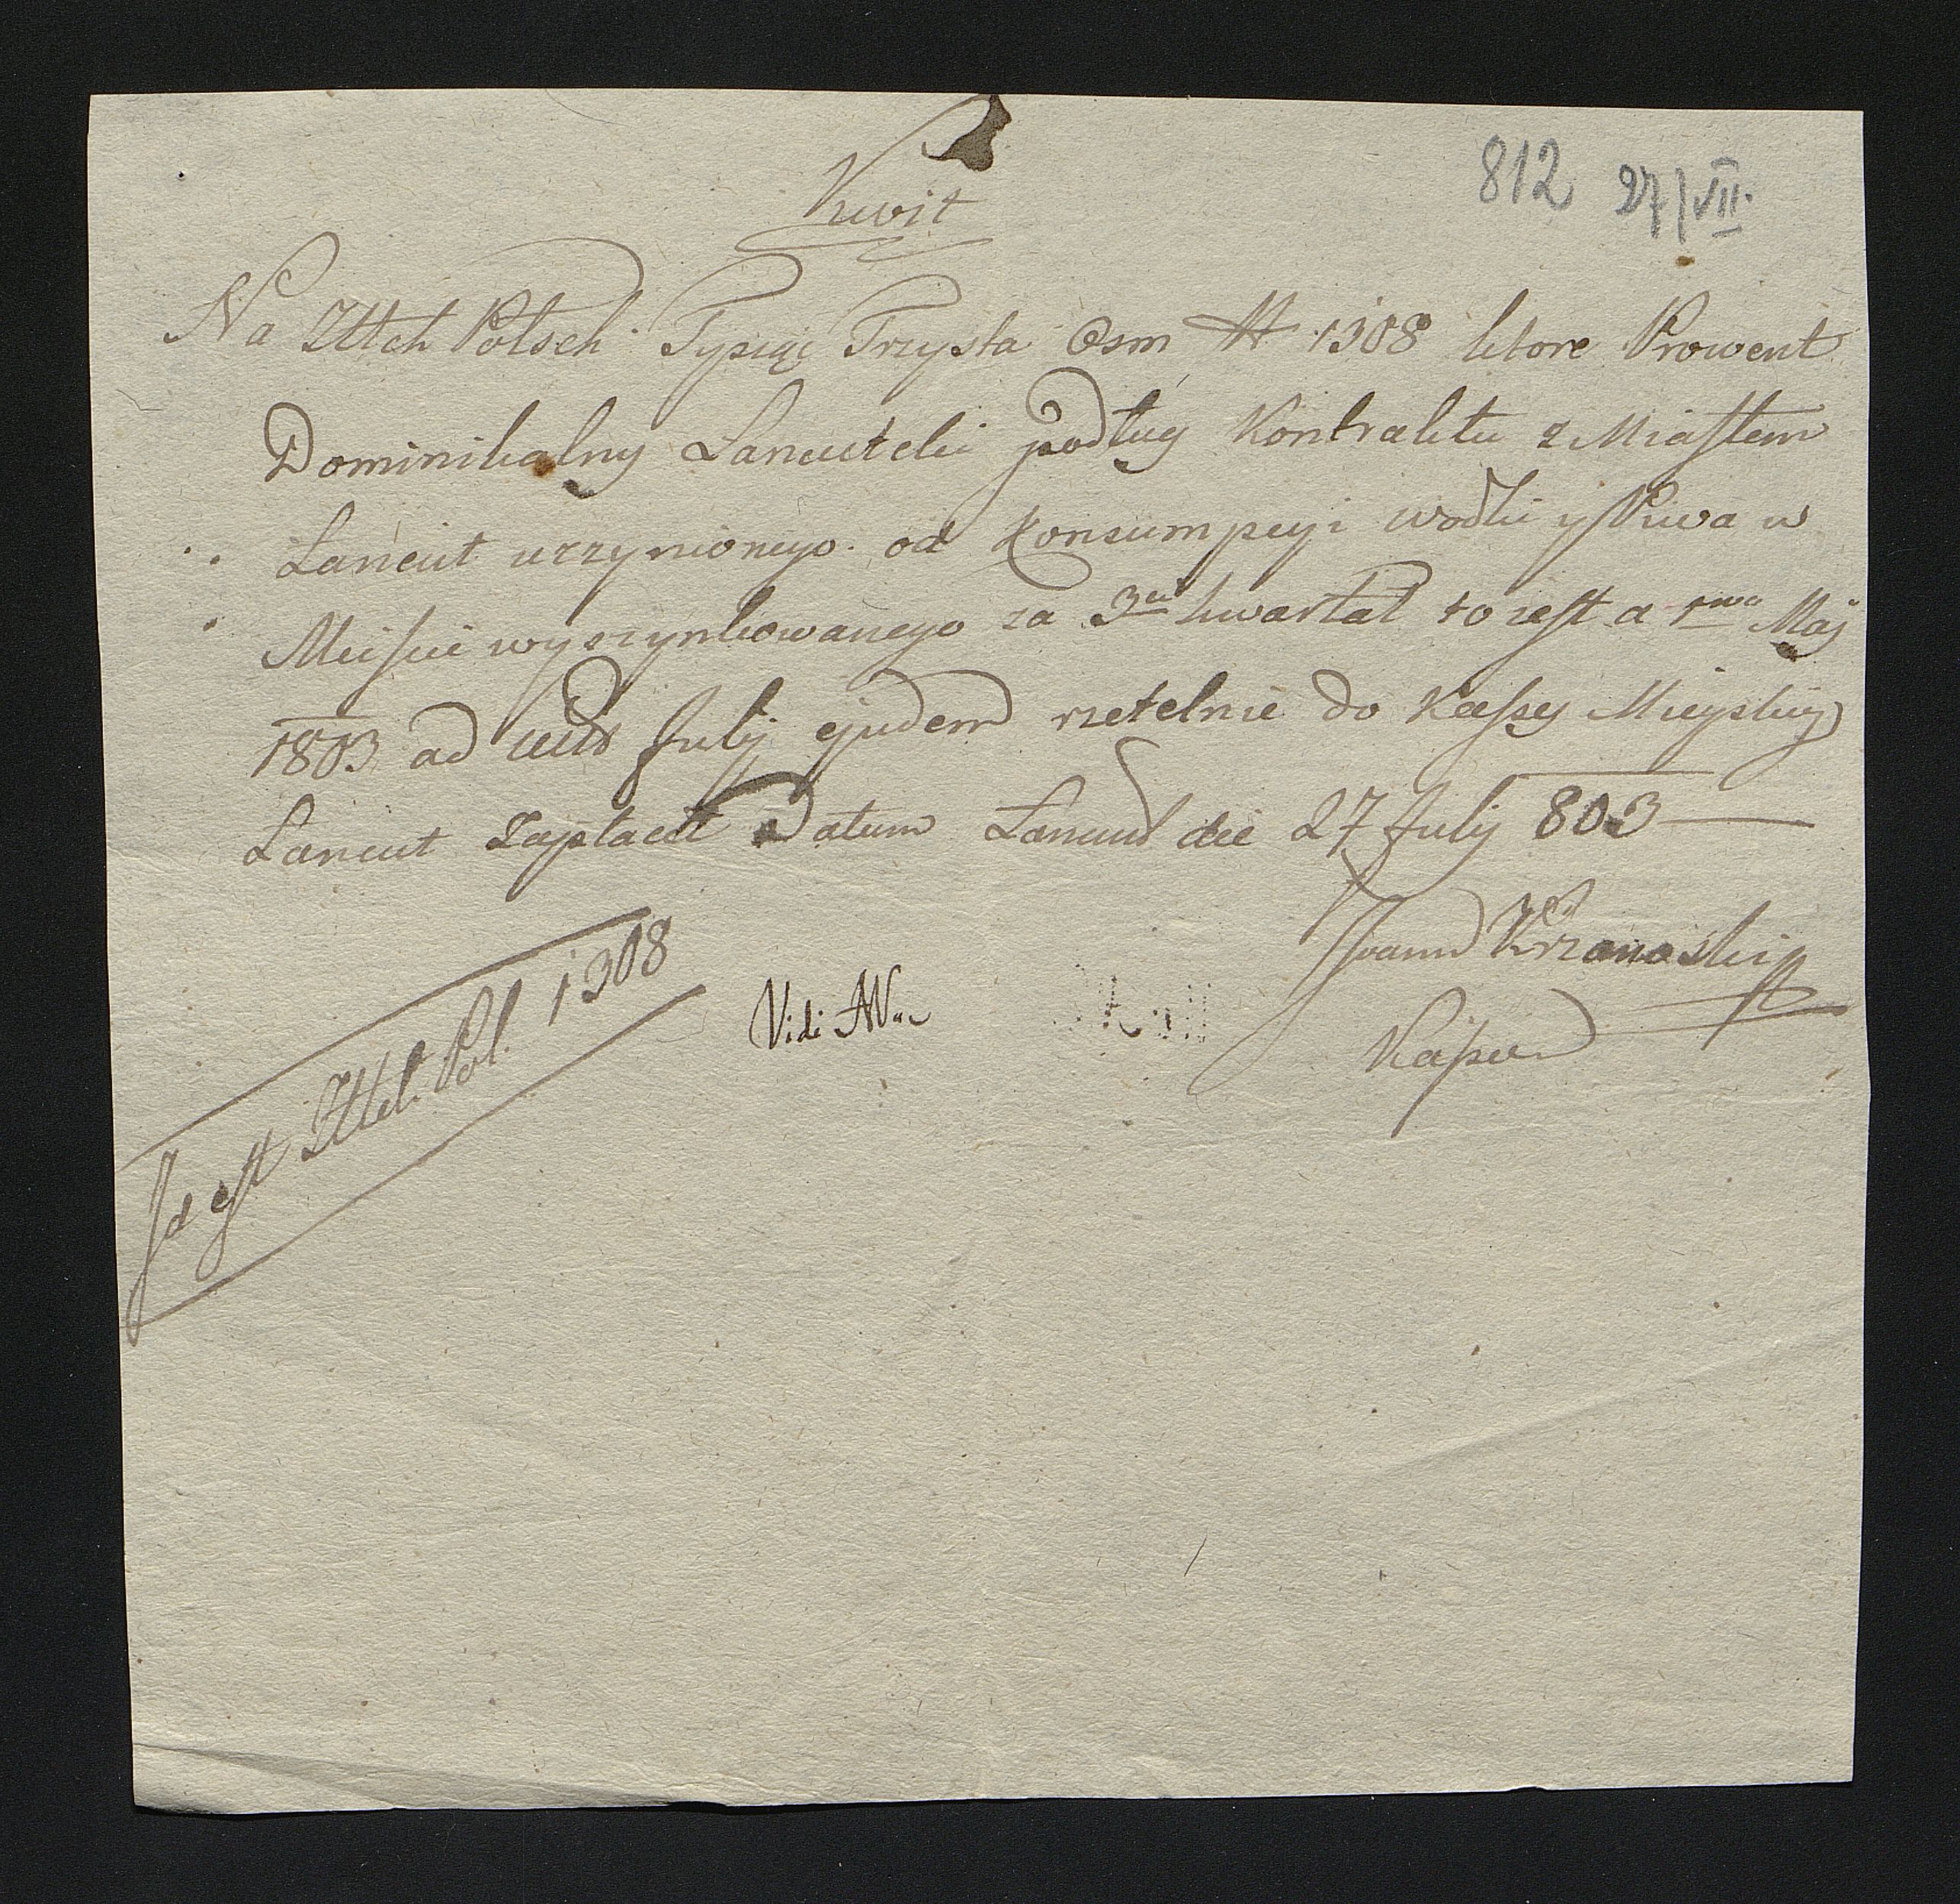 812 27/VII.
Kwit
Na Złtch Polsch Tysiąc Trzysta Osm # 1308 ktore Prowent
Dominikalny Lancutcki podług Kontraktu z Miastem
Lancut uczynionego od Konsumpcyi wodki y Piwa w
Mieście wyszynkowanego za 3ci kwartał to jest a 1ma Maj
1803 ad July ejusdem rzetelnie do Kassy Mieyskiey
Lancut Zapłacił Datum Lancut die 27 July 803
Krzanoski
Id est Złtch Pol. 1308
Vidi